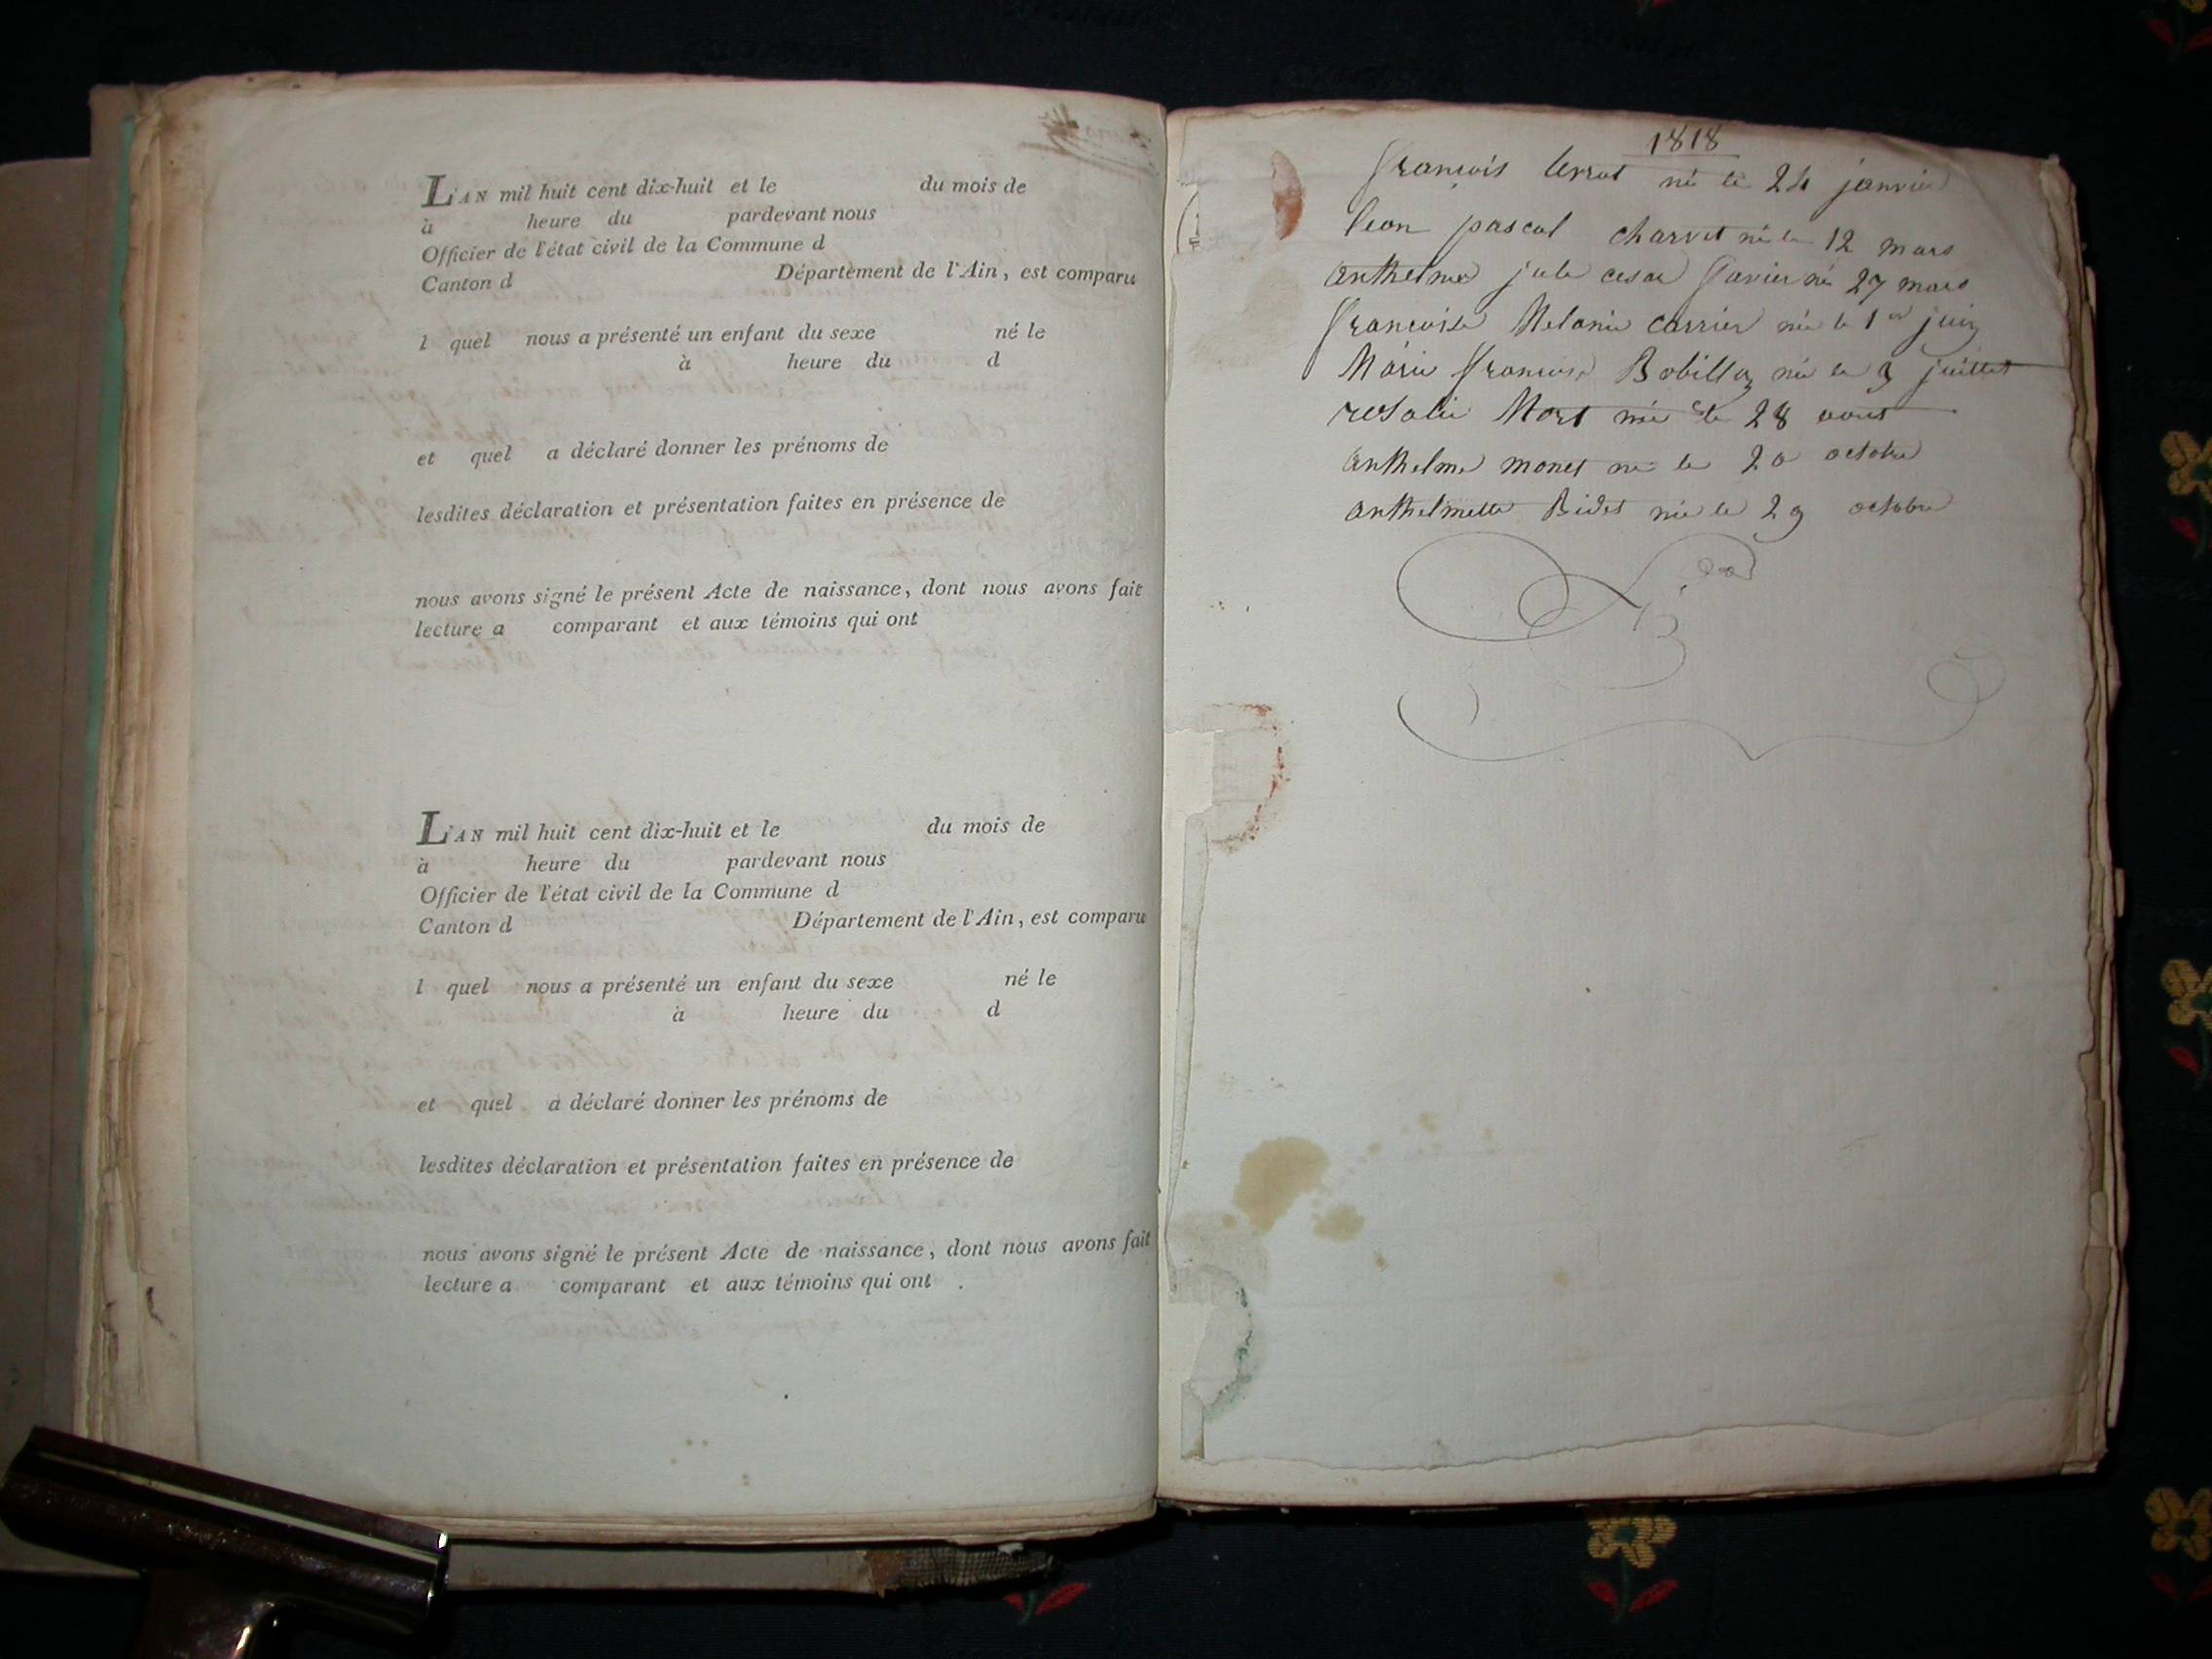 L'AN mil huit cent dix-huit et le du mois de
à heure du pardevant nous
Officier de l'état civil de la Commune d
Canton d Département de l'Ain, est comparu
l quel nous a présenté un enfant du sexe né le
à heure du d
et quel a déclaré donner les prénoms de
lesdites déclaration et présentation faites en présence de
nous avons signé le présent Acte de naissance, dont nous avons fait
lecture a comparant et aux témoins qui ont
L'AN mil huit cent dix-huit et le du mois de
à heure du pardevant nous
Officier de l'état civil de la Commune d
Canton d Département de l'Ain, est comparu
l quel nous a présenté un enfant du sexe né le
à heure du d
et quel a déclaré donner les prénoms de
lesdites déclaration et présentation faites en présence de
nous avons signé le présent Acte de naissance, dont nous avons fait
lecture a comparant et aux témoins qui ont
1818
françois né le 24 janvier
leon pascal charvet né le 12 mars
anthelme jule cesar né 27 mars
francoise Melanie carrier née le 1er juin
Marie francoise Bobillon née le 9 juillet
rosalie Mort née le 28 aout
anthelme monet né le 20 octobre
anthelmette Bidet née le 29 octobre